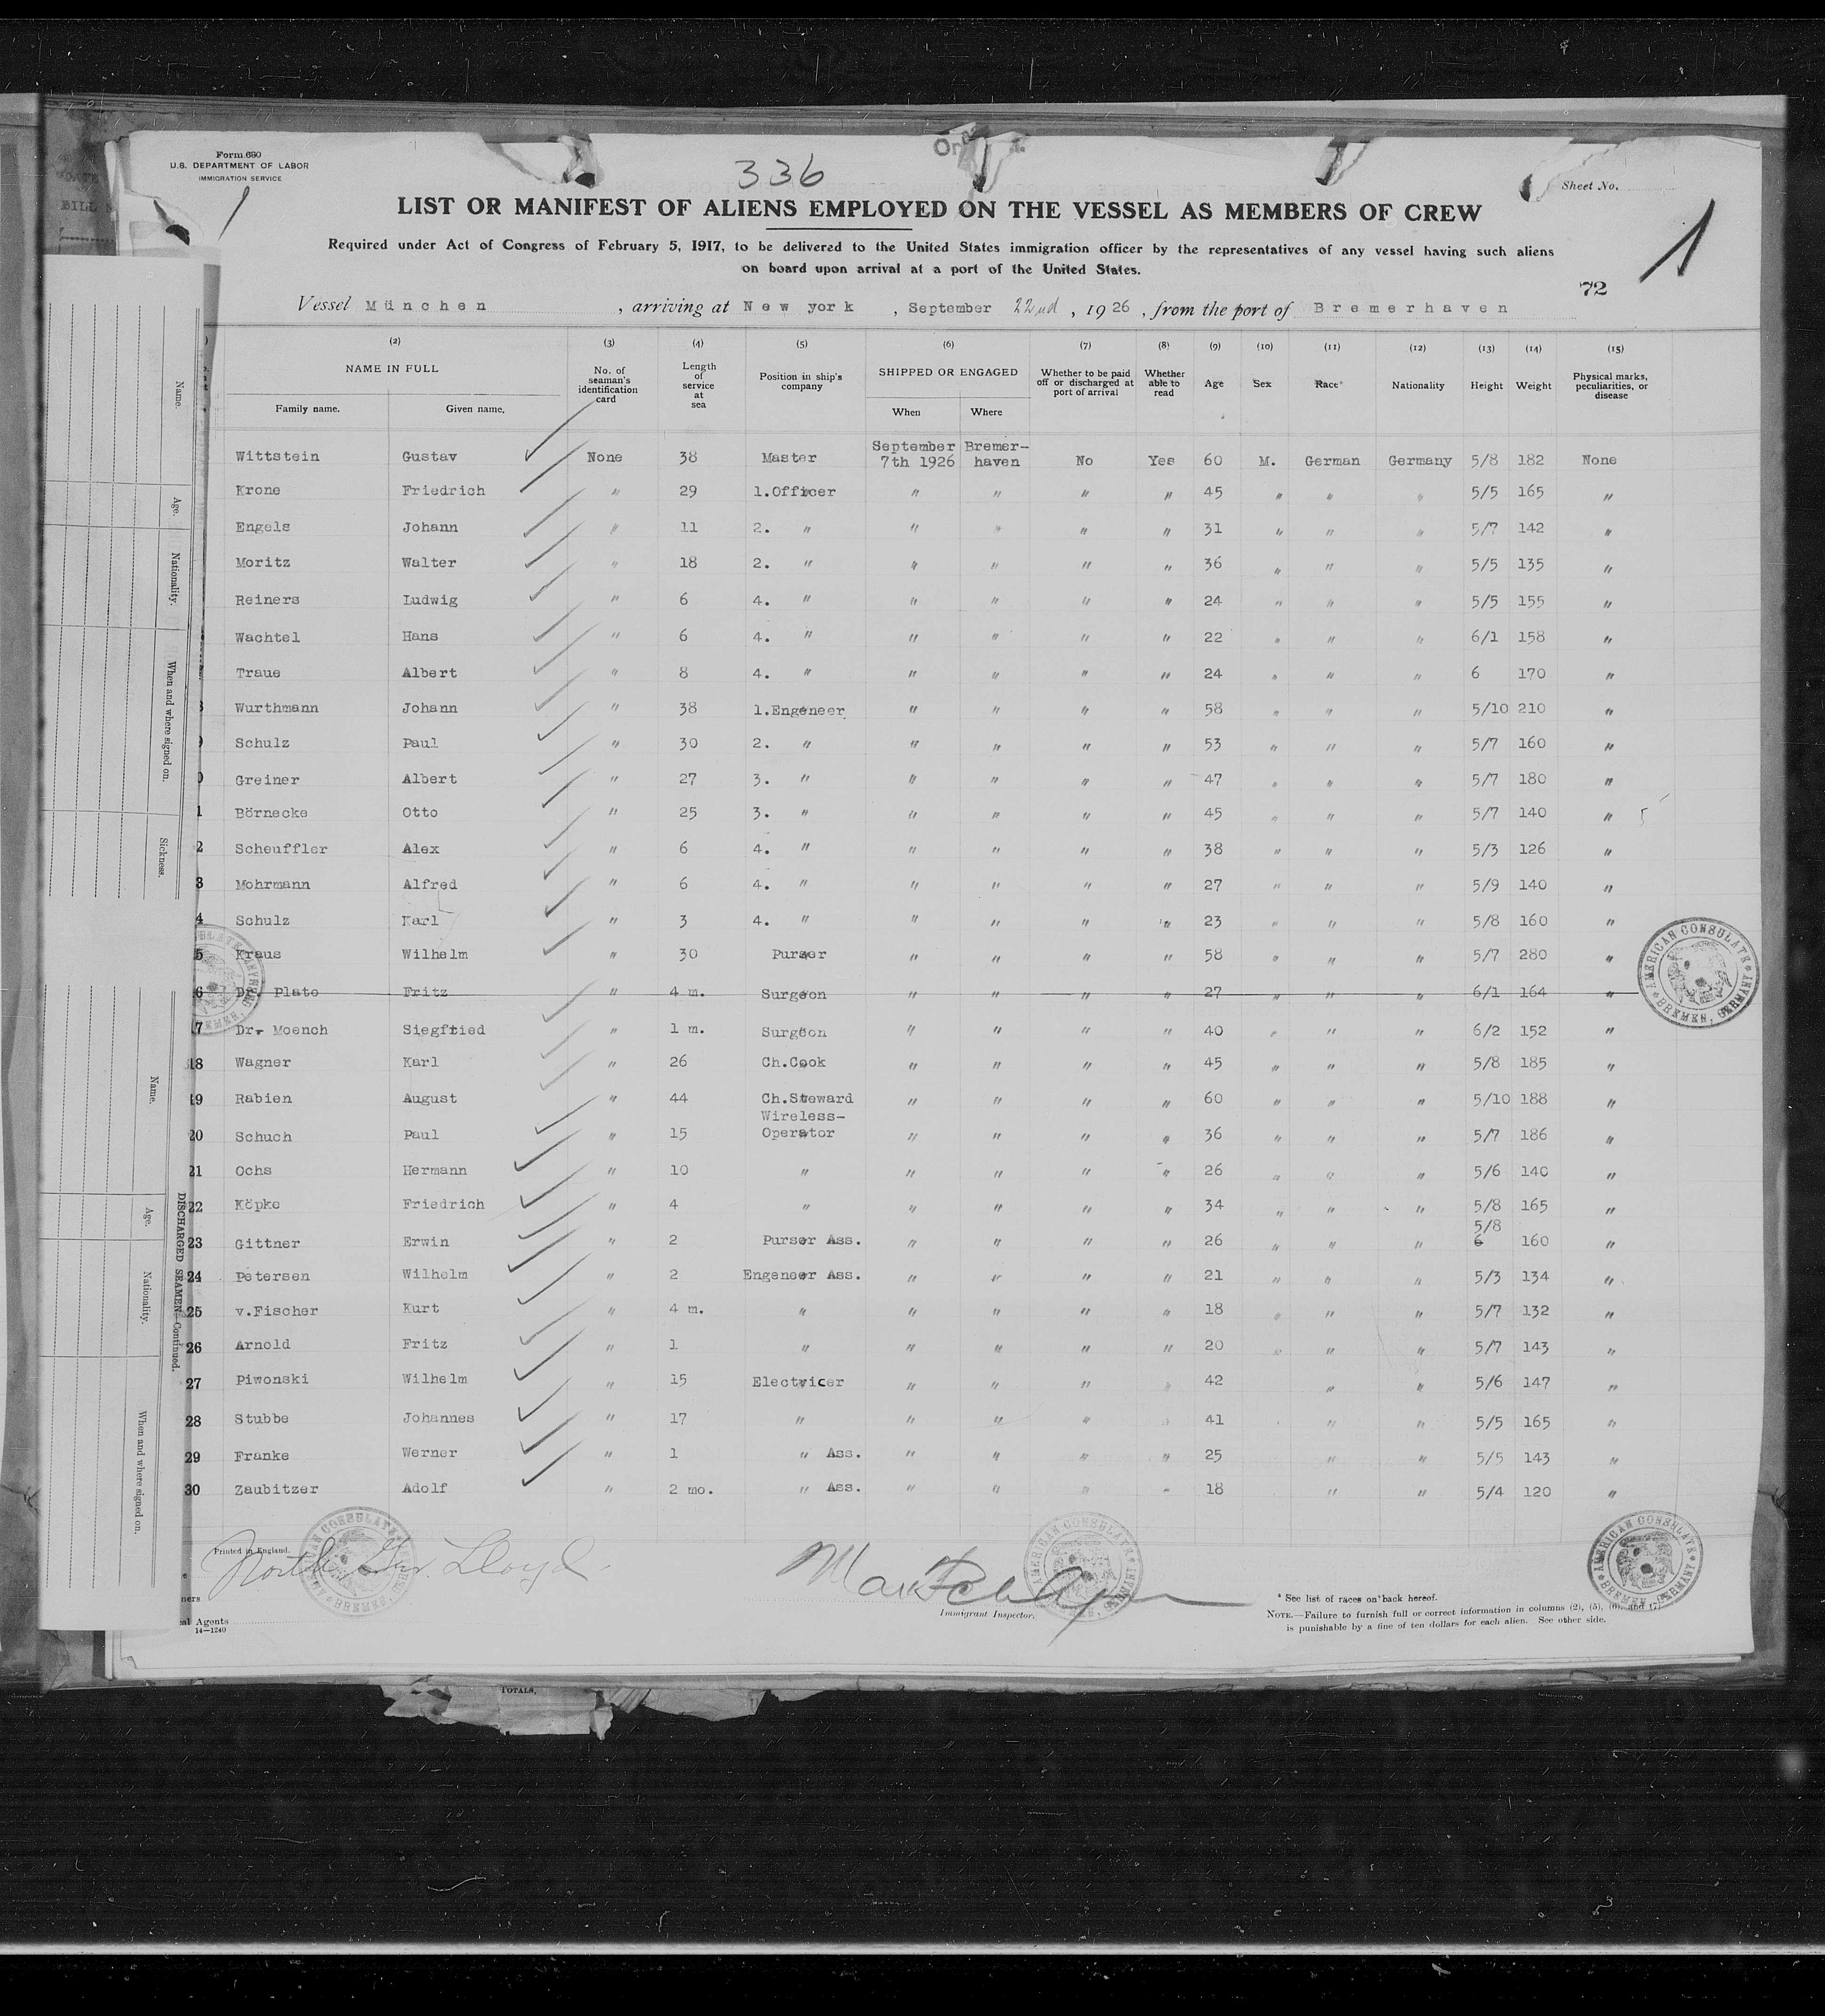 Form 680
U.S. DEPARTMENT OF LABOR
IMMIGRATION SERVICE
336
Sheet No.
1
1
LIST OR MANIFEST OF ALIENS EMPLOYED ON THE VESSEL AS MEMBERS OF CREW
Required under Act of Congress of February 5, 1917, to be delivered to the United States immigration officer by the representatives of any vessel having such aliens
on board upon arrival at a port of the United States.
72
Vessel München, arriving at New york, September 22nd, 1926, from the port of Bremerhaven
(2) (3) (4) (5) (6) (7) (8) (9) (10) (11) (12) (13) (14) (15)
NAME IN FULL No. of seaman's identification card Length of service at sea Position in ship's company SHIPPED OR ENGAGED Whether to be paid off or discharged at port of arrival Whether able to read Age Sex Race* Nationality Height Weight Physical marks, peculiarities, or disease
Family name. Given name. When Where
Wittstein Gustav None 38 Master September 7th 1926 Bremer-haven No Yes 60 M. German Germany 5/8 182 None
Krone Friedrich " 29 1.Officer " " " " 45 " " " 5/5 165 "
Engels Johann " 11 2. " " " " " 31 " " " 5/7 142 "
Moritz Walter " 18 2. " " " " " 36 " " " 5/5 135 "
Reiners Ludwig " 6 4. " " " " " 24 " " " 5/5 155 "
Wachtel Hans " 6 4. " " " " " 22 " " " 6/1 158 "
Traue Albert " 8 4. " " " " " 24 " " " 6 170 "
Wurthmann Johann " 38 1.Engeneer " " " " 58 " " " 5/10 210 "
Schulz Paul " 30 2. " " " " " 53 " " " 5/7 160 "
Greiner Albert " 27 3. " " " " " 47 " " " 5/7 180 "
1 Börnecke Otto " 25 3. " " " " " 45 " " " 5/7 140 "
2 Scheuffler Alex " 6 4. " " " " " 38 " " " 5/3 126 "
3 Mohrmann Alfred " 6 4. " " " " " 27 " " " 5/9 140 "
4 Schulz Karl " 3 4. " " " " " 23 " " " 5/8 160 "
5 Kraus Wilhelm " 30 Purser " " " " 58 " " " 5/7 280 "
6 Dr. Plato Fritz " 4 m. Surgeon " " " " 27 " " " 6/1 164 "
7 Dr. Moench Siegfried " 1 m. Surgeon " " " " 40 " " " 6/2 152 "
18 Wagner Karl " 26 Ch.Cook " " " " 45 " " " 5/8 185 "
19 Rabien August " 44 Ch.Steward " " " " 60 " " " 5/10 188 "
20 Schuch Paul " 15 Wireless-Operator " " " " 36 " " " 5/7 186 "
21 Ochs Hermann " 10 " " " " " 26 " " " 5/6 140 "
22 Köpke Friedrich " 4 " " " " " 34 " " " 5/8 165 "
5/8
23 Gittner Erwin " 2 Purser Ass. " " " " 26 " " " 6 160 "
24 Petersen Wilhelm " 2 Engeneer Ass. " " " " 21 " " " 5/3 134 "
25 v.Fischer Kurt " 4 m. " " " " " 18 " " " 5/7 132 "
26 Arnold Fritz " 1 " " " " " 20 " " " 5/7 143 "
27 Piwonski Wilhelm " 15 Electricer " " " " 42 " " 5/6 147 "
28 Stubbe Johannes " 17 " " " " " 41 " " 5/5 165 "
29 Franke Werner " 1 " Ass. " " " " 25 " " 5/5 143 "
30 Zaubitzer Adolf " 2 mo. " Ass. " " " " 18 " " 5/4 120 "
Printed in England.
North Ger. Lloyd
Immigrant Inspector.
* See list of races on back hereof.
NOTE.—Failure to furnish full or correct information in columns (2), (5), (6), and (7)
is punishable by a fine of ten dollars for each alien. See other side.
al Agents
14—1240
TOTALS,
AMERICAN CONSULATE
BREMEN, GERMANY
AMERICAN CONSULATE
BREMEN, GERMANY
AMERICAN CONSULATE
BREMEN, GERMANY
AMERICAN CONSULATE
BREMEN, GERMANY
Name.
Age.
Nationality.
When and where signed on.
Sickness.
DISCHARGED SEAMEN—Continued.
Name.
Age.
Nationality.
When and where signed on.